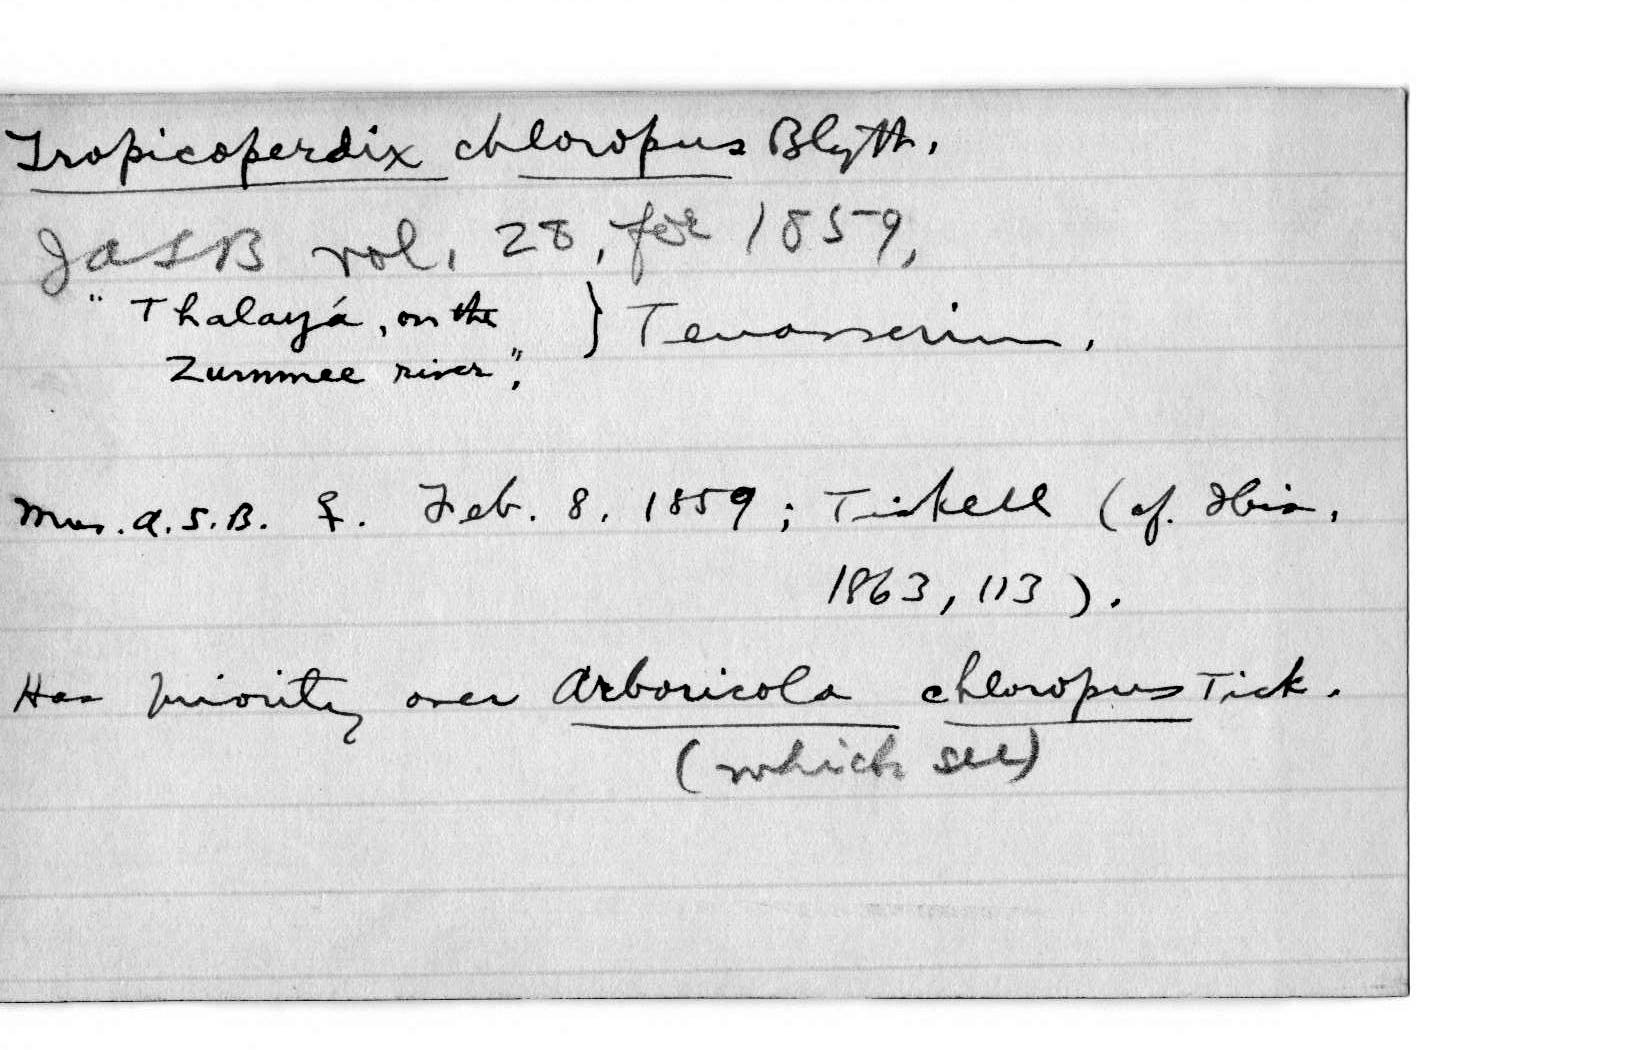 Tropicoperdix chloropus Blyth.
JASB vol. 28, for 1859,
"Thalayá, on the
Zummee river", } Tenasserim.
Mus. A.S.B. ♀. Feb. 8, 1859; Tickell (cf. Ibis,
1863, 113).
Has priority over Arboricola chloropus Tick.
(which see)